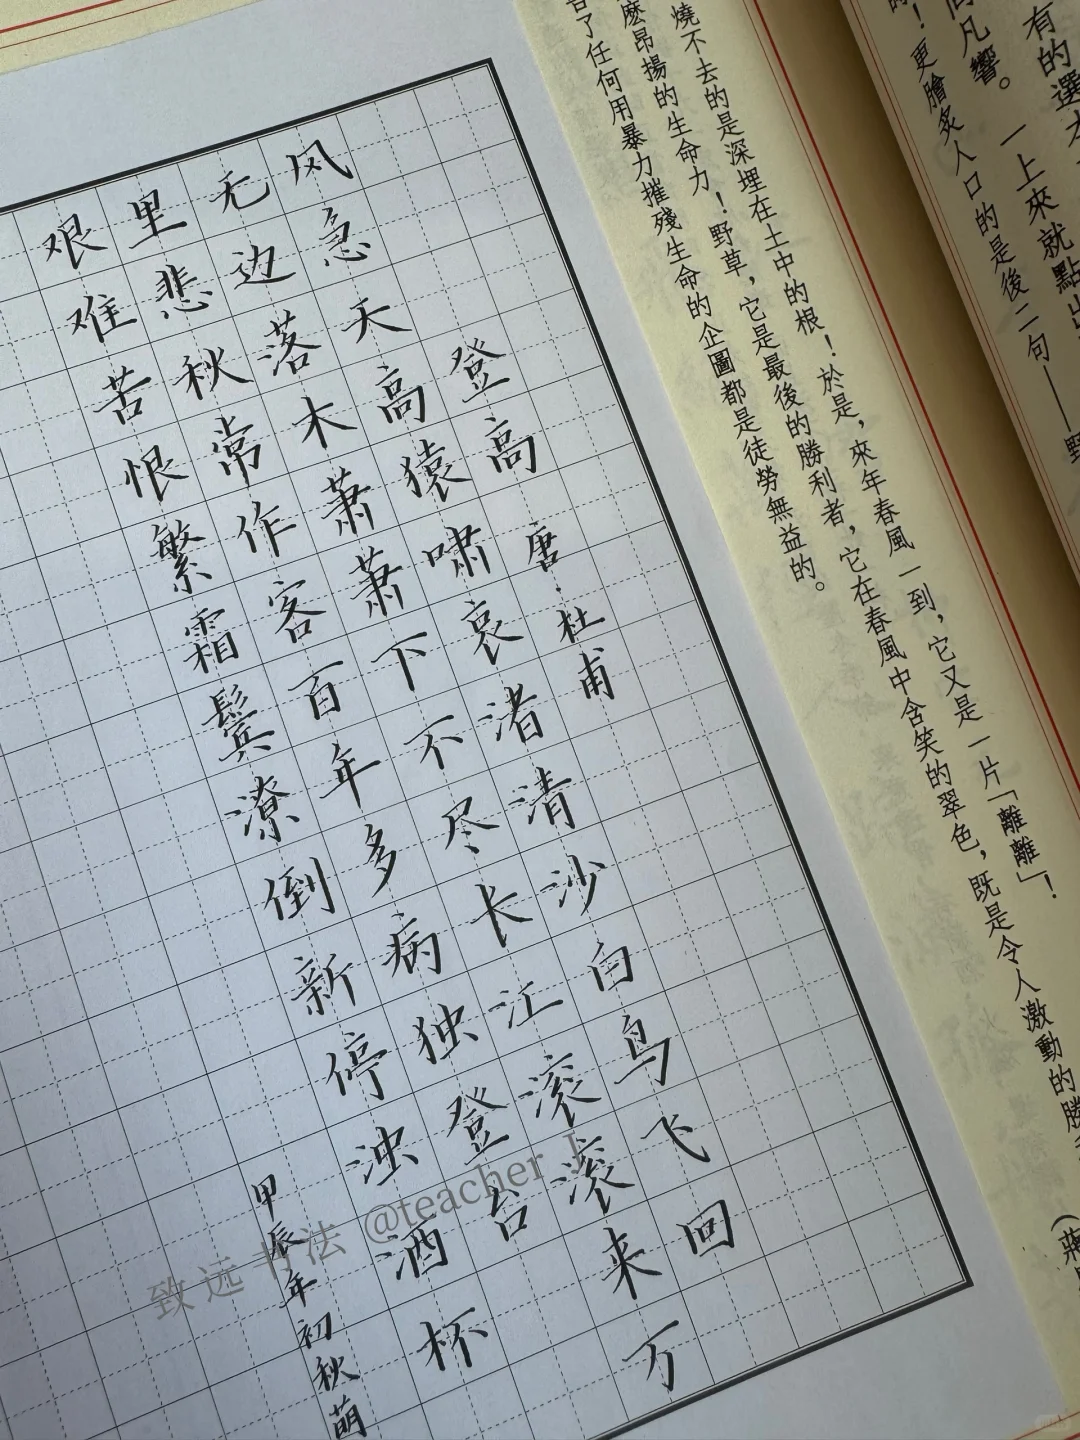 有的選
凡響。一上來就點出
！更膾炙人口的是後二句——野
燒不去的是深埋在土中的根！於是，來年春風一到，它又是一片「離離」！
麽昂揚的生命力！野草，它是最後的勝利者，它在春風中含笑的翠色，既是令人激動的勝
了任何用暴力摧殘生命的企圖都是徒勞無益的。
（蔣
登高 唐·杜甫
风急天高猿啸哀渚清沙白鸟飞回
无边落木萧萧下不尽长江滚滚来万
里悲秋常作客百年多病独登台
艰难苦恨繁霜鬓潦倒新停浊酒杯
甲辰年初秋萌
致远书法 @teacher J